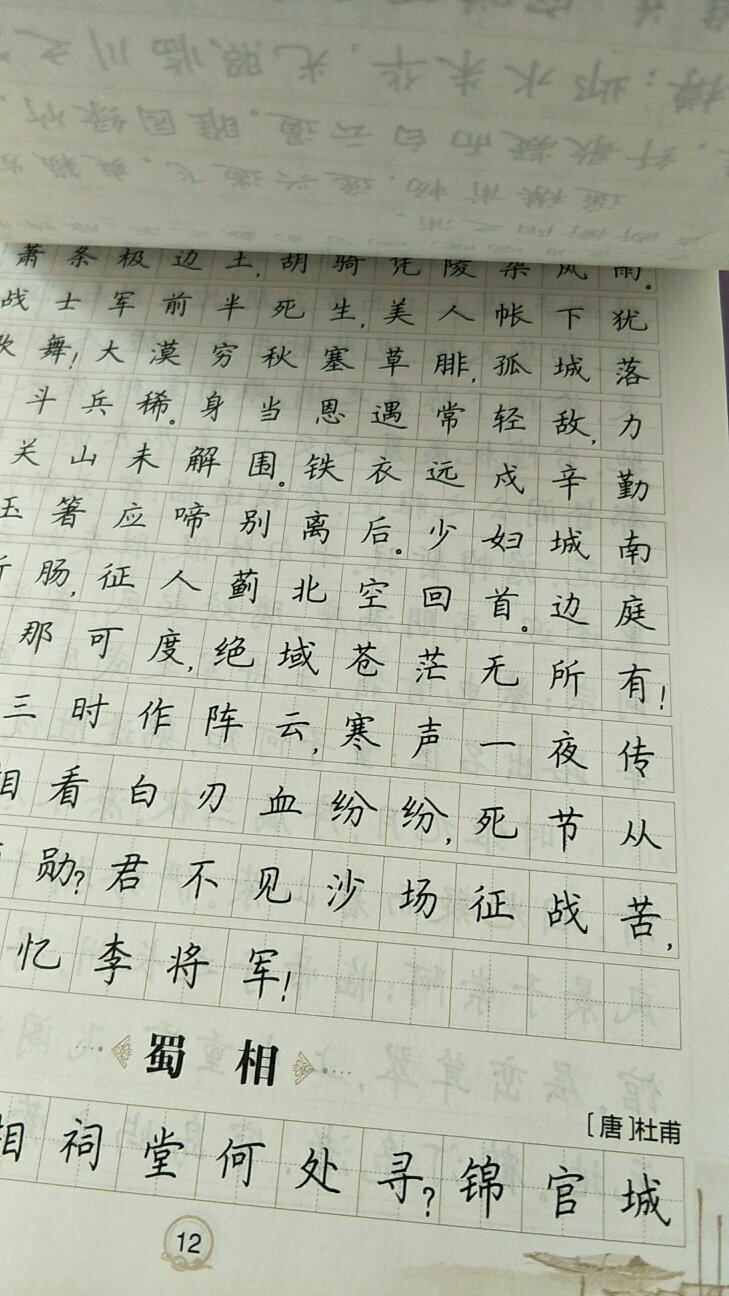 萧条极边土,胡骑凭陵杂风雨。
战士军前半死生,美人帐下犹
舞!大漠穷秋塞草腓,孤城落
斗兵稀。身当恩遇常轻敌,力
关山未解围。铁衣远戍辛勤
玉箸应啼别离后。少妇城南
肠,征人蓟北空回首。边庭
那可度,绝域苍茫无所有!
三时作阵云,寒声一夜传
相看白刃血纷纷,死节从
勋?君不见沙场征战苦,
忆李将军!
蜀相
[唐]杜甫
相祠堂何处寻?锦官城
12